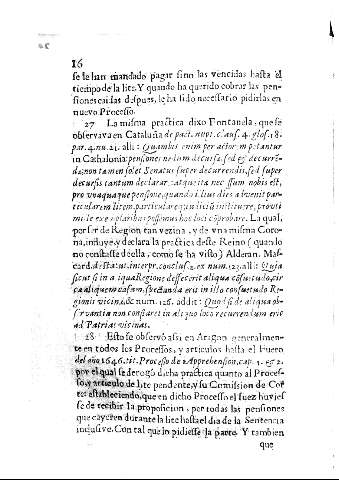 16
se le han mandado pagar sino las vencidas hasta el
tiempo de la lite, Y quando ha querido cobrar las pen-
siones caidas despues, le ha sido necessario pidirlas en
nuevo Processo.
27 La misma practica dixo Fontanela, que se
observava en Cataluña de pact. nupt. clausf. 4. glos. 18.
par. 4. nu. 21. alli: Quamvis enim per actorem petantur
in Cathalonia pensiones nedum decursæ, sed & decurren-
dæ, non tamen solet Senatus super decurrendis, sed super
decursis tantum declarare, atque ita nec summ nobis est,
pro unaquaque pensione, quando illius dies advenit par-
ticularem litem,
mille exemplaribus possumus hoc loci comprobare. La qual,
por ser de Region tan vezina, y de vna misma Coro-
na, influye, y declara la practica deste Reino (quando
no constasse della, como se ha visto) Alderan. Mas-
card. de statut. interpr. concluf. 2. ex num. 123. alli: Quia
sicut si in aliqua Regione deesset aliqua consuetudo, cir-
ca aliquem casum, secundum eris in illo consuetudo Re-
gionis vicinæ, & c num. 126. addit: Quod si de aliqua ob-
servantia non constaret in aliquo loco recurrendum erit
ad Patrias vicinas.
28 Esto se observò assi en Aragon generalmen-
te en todos los Processos, y articulos hasta el Fuero
del año 1646. tit. Processo de Aprehension, cap. 1. & 2.
por el qual se derogò dicha practica quanto al Proces-
so, y articulo de lite pendente, y su Comission de Cor-
tes estableciendo, que en dicho Processo el Iuez huviesse
se de recibir la proposicion, por todas las pensiones
que cayeren durante la lite hasta el dia de la Sentencia
inclusive. Con tal que lo pidiesse la parte. Y tambien
que